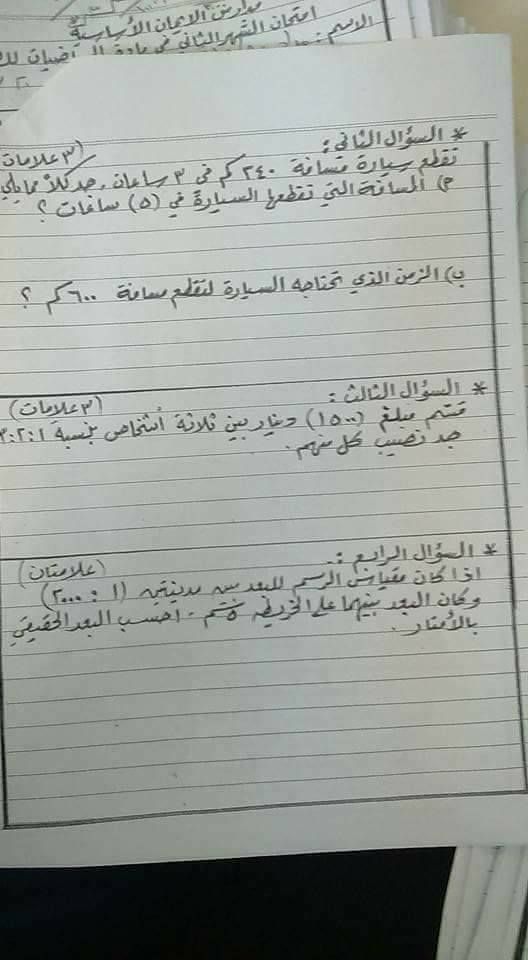 مدارس الإيمان الأساسية
امتحان الشهر الثاني في مادة الرياضيات
الاسم:
* السؤال الثاني: (٣ علامات)
تقطع سيارة مسافة ٢٤٠ كم في ٣ ساعات، جد كلاً مما يلي
أ) المسافة التي تقطعها السيارة في (٥) ساعات ؟
ب) الزمن الذي تحتاجه السيارة لتقطع مسافة ٦٠٠ كم ؟
* السؤال الثالث: (٣ علامات)
قسم مبلغ (١٥٠٠) دينار بين ثلاثة أشخاص بنسبة ٣:٢:١
جد نصيب كل منهم.
* السؤال الرابع: (علامتان)
اذا كان مقياس الرسم للبعد بين مدينتين (١ : ٢٠٠٠)
وكان البعد بينهما على الخريطة ٥ سم. احسب البعد الحقيقي
بالأمتار.